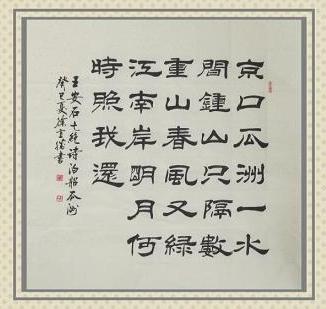 京口瓜洲一水
間鍾山只隔數
重山春風又緑
江南岸明月何
時照我還
王安石七絶詩泊船瓜洲
癸巳夏徐書